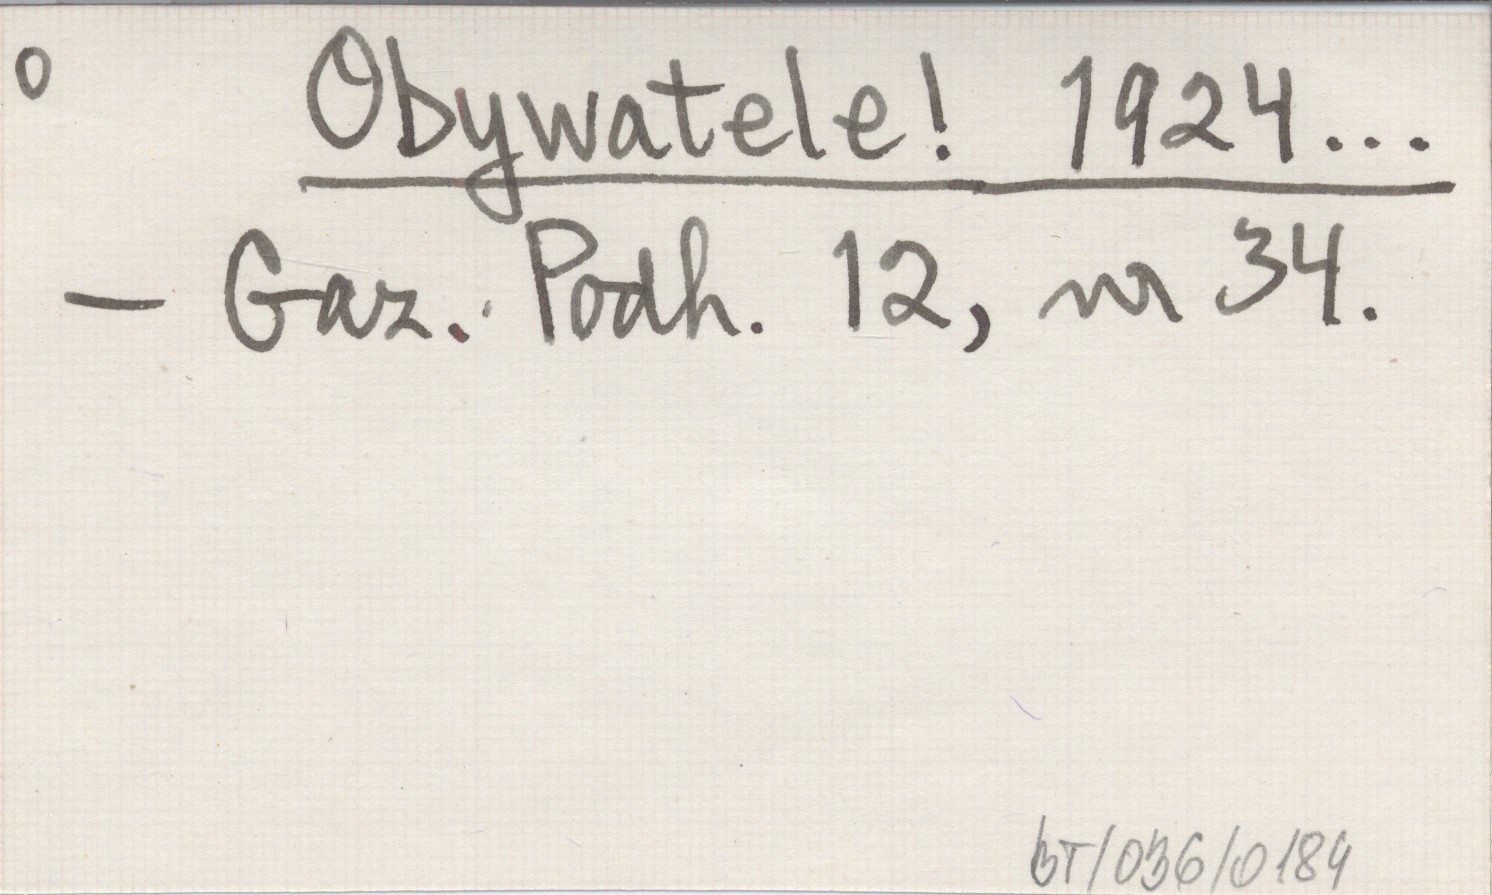 0 Obywatele! 1924...
— Gaz. Podh. 12, nr 34.
BT/036/0184